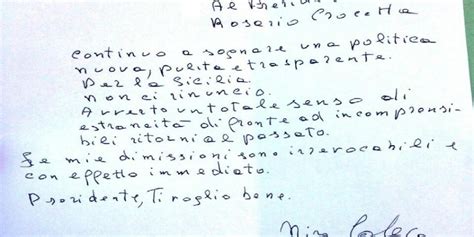 Rosario Crocetta
Continuo a sognare una politica
nuova, pulita e trasparente.
Per la Sicilia.
non ci rinuncio.
Avverto un totale senso di
estraneità di fronte ad incomprensi-
bili ritorni al passato.
Le mie dimissioni sono irrevocabili e
con effetto immediato.
Presidente, Ti voglio bene.